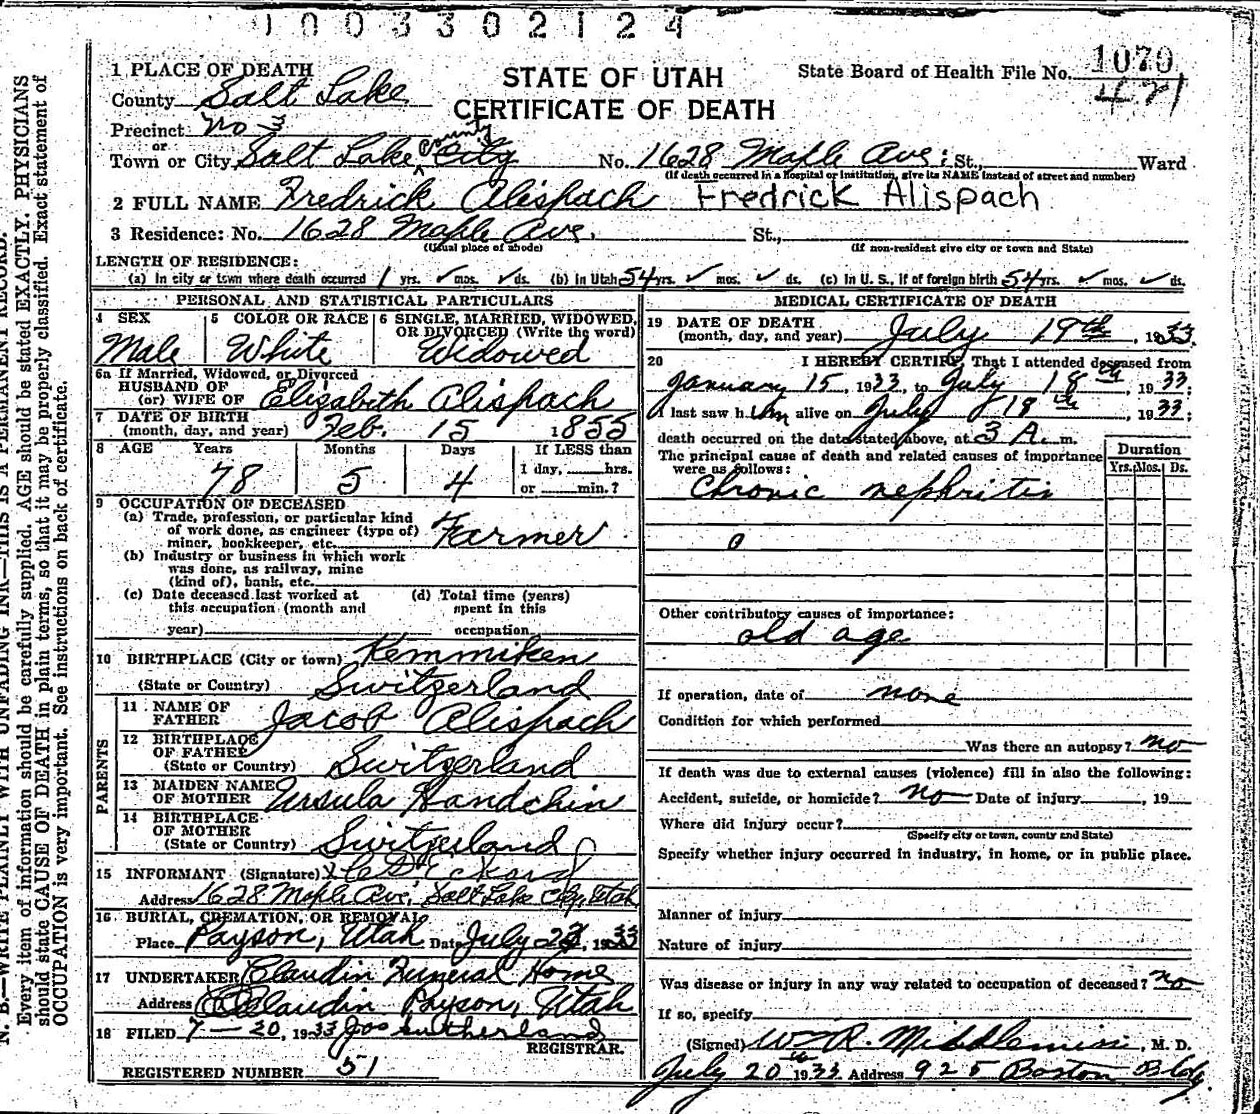 1003302124
1 PLACE OF DEATH
STATE OF UTAH
CERTIFICATE OF DEATH
State Board of Health File No. 1070
421
County Salt Lake
Precinct No 3
or
Town or City Salt Lake County City No. 1628 Maple Ave; St., Ward
(If death occurred in a Hospital or Institution, give its NAME instead of street and number)
2 FULL NAME Fredrick Alispach Fredrick Alispach
3 Residence: No. 1628 Maple Ave. St.,
(Usual place of abode) (If non-resident give city or town and State)
LENGTH OF RESIDENCE:
(a) In city or town where death occurred 1 yrs. ✓ mos. ✓ ds. (b) in Utah 54 yrs. ✓ mos. ✓ ds. (c) In U. S., if of foreign birth 54 yrs. ✓ mos. ✓ ds.
PERSONAL AND STATISTICAL PARTICULARS
4 SEX
Male
5 COLOR OR RACE
White
6 SINGLE, MARRIED, WIDOWED,
OR DIVORCED (Write the word)
Widowed
6a If Married, Widowed, or Divorced
HUSBAND OF
(or) WIFE OF Elizabeth Alispach
7 DATE OF BIRTH
(month, day, and year) Feb. 15 1855
8 AGE Years Months Days If LESS than
1 day, hrs.
or min.?
78 5 4
9 OCCUPATION OF DECEASED
(a) Trade, profession, or particular kind
of work done, as engineer (type of)
miner, bookkeeper, etc. Farmer
(b) Industry or business in which work
was done, as railway, mine
(kind of), bank, etc.
(c) Date deceased last worked at
this occupation (month and
year)
(d) Total time (years)
spent in this
occupation
10 BIRTHPLACE (City or town) Kemmiken
(State or Country) Switzerland
PARENTS
11 NAME OF
FATHER Jacob Alispach
12 BIRTHPLACE
OF FATHER
(State or Country) Switzerland
13 MAIDEN NAME
OF MOTHER Ursula Handchin
14 BIRTHPLACE
OF MOTHER
(State or Country) Switzerland
15 INFORMANT (Signature)
Address 1628 Maple Ave, Salt Lake City, Utah
16 BURIAL, CREMATION, OR REMOVAL
Place Payson, Utah Date July 23, 1933
17 UNDERTAKER Claudin Funeral Home
Address Claudin Payson, Utah
18 FILED 7-20, 1933 Jos Sutherland
REGISTRAR.
REGISTERED NUMBER 51
MEDICAL CERTIFICATE OF DEATH
19 DATE OF DEATH
(month, day, and year) July 19th, 1933.
20 I HEREBY CERTIFY, That I attended deceased from
January 15, 1933, to July 18th, 1933:
I last saw him alive on July 18th, 1933:
death occurred on the date stated above, at 3 A. m.
The principal cause of death and related causes of importance
were as follows:
Duration
Yrs. Mos. Ds.
Chronic nephritis
o
Other contributory causes of importance:
old age
If operation, date of none
Condition for which performed
Was there an autopsy? no
If death was due to external causes (violence) fill in also the following:
Accident, suicide, or homicide? no Date of injury , 19
Where did injury occur?
(Specify city or town, county and State)
Specify whether injury occurred in industry, in home, or in public place.
Manner of injury
Nature of injury
Was disease or injury in any way related to occupation of deceased? no
If so, specify
(Signed) Wm R. Middlemiss, M. D.
July 20th 1933 Address 925 Boston Bldg.
N. B.—WRITE PLAINLY WITH UNFADING INK—THIS IS A PERMANENT RECORD.
Every item of information should be carefully supplied. AGE should be stated EXACTLY. PHYSICIANS
should state CAUSE OF DEATH in plain terms, so that it may be properly classified. Exact statement of
OCCUPATION is very important. See instructions on back of certificate.